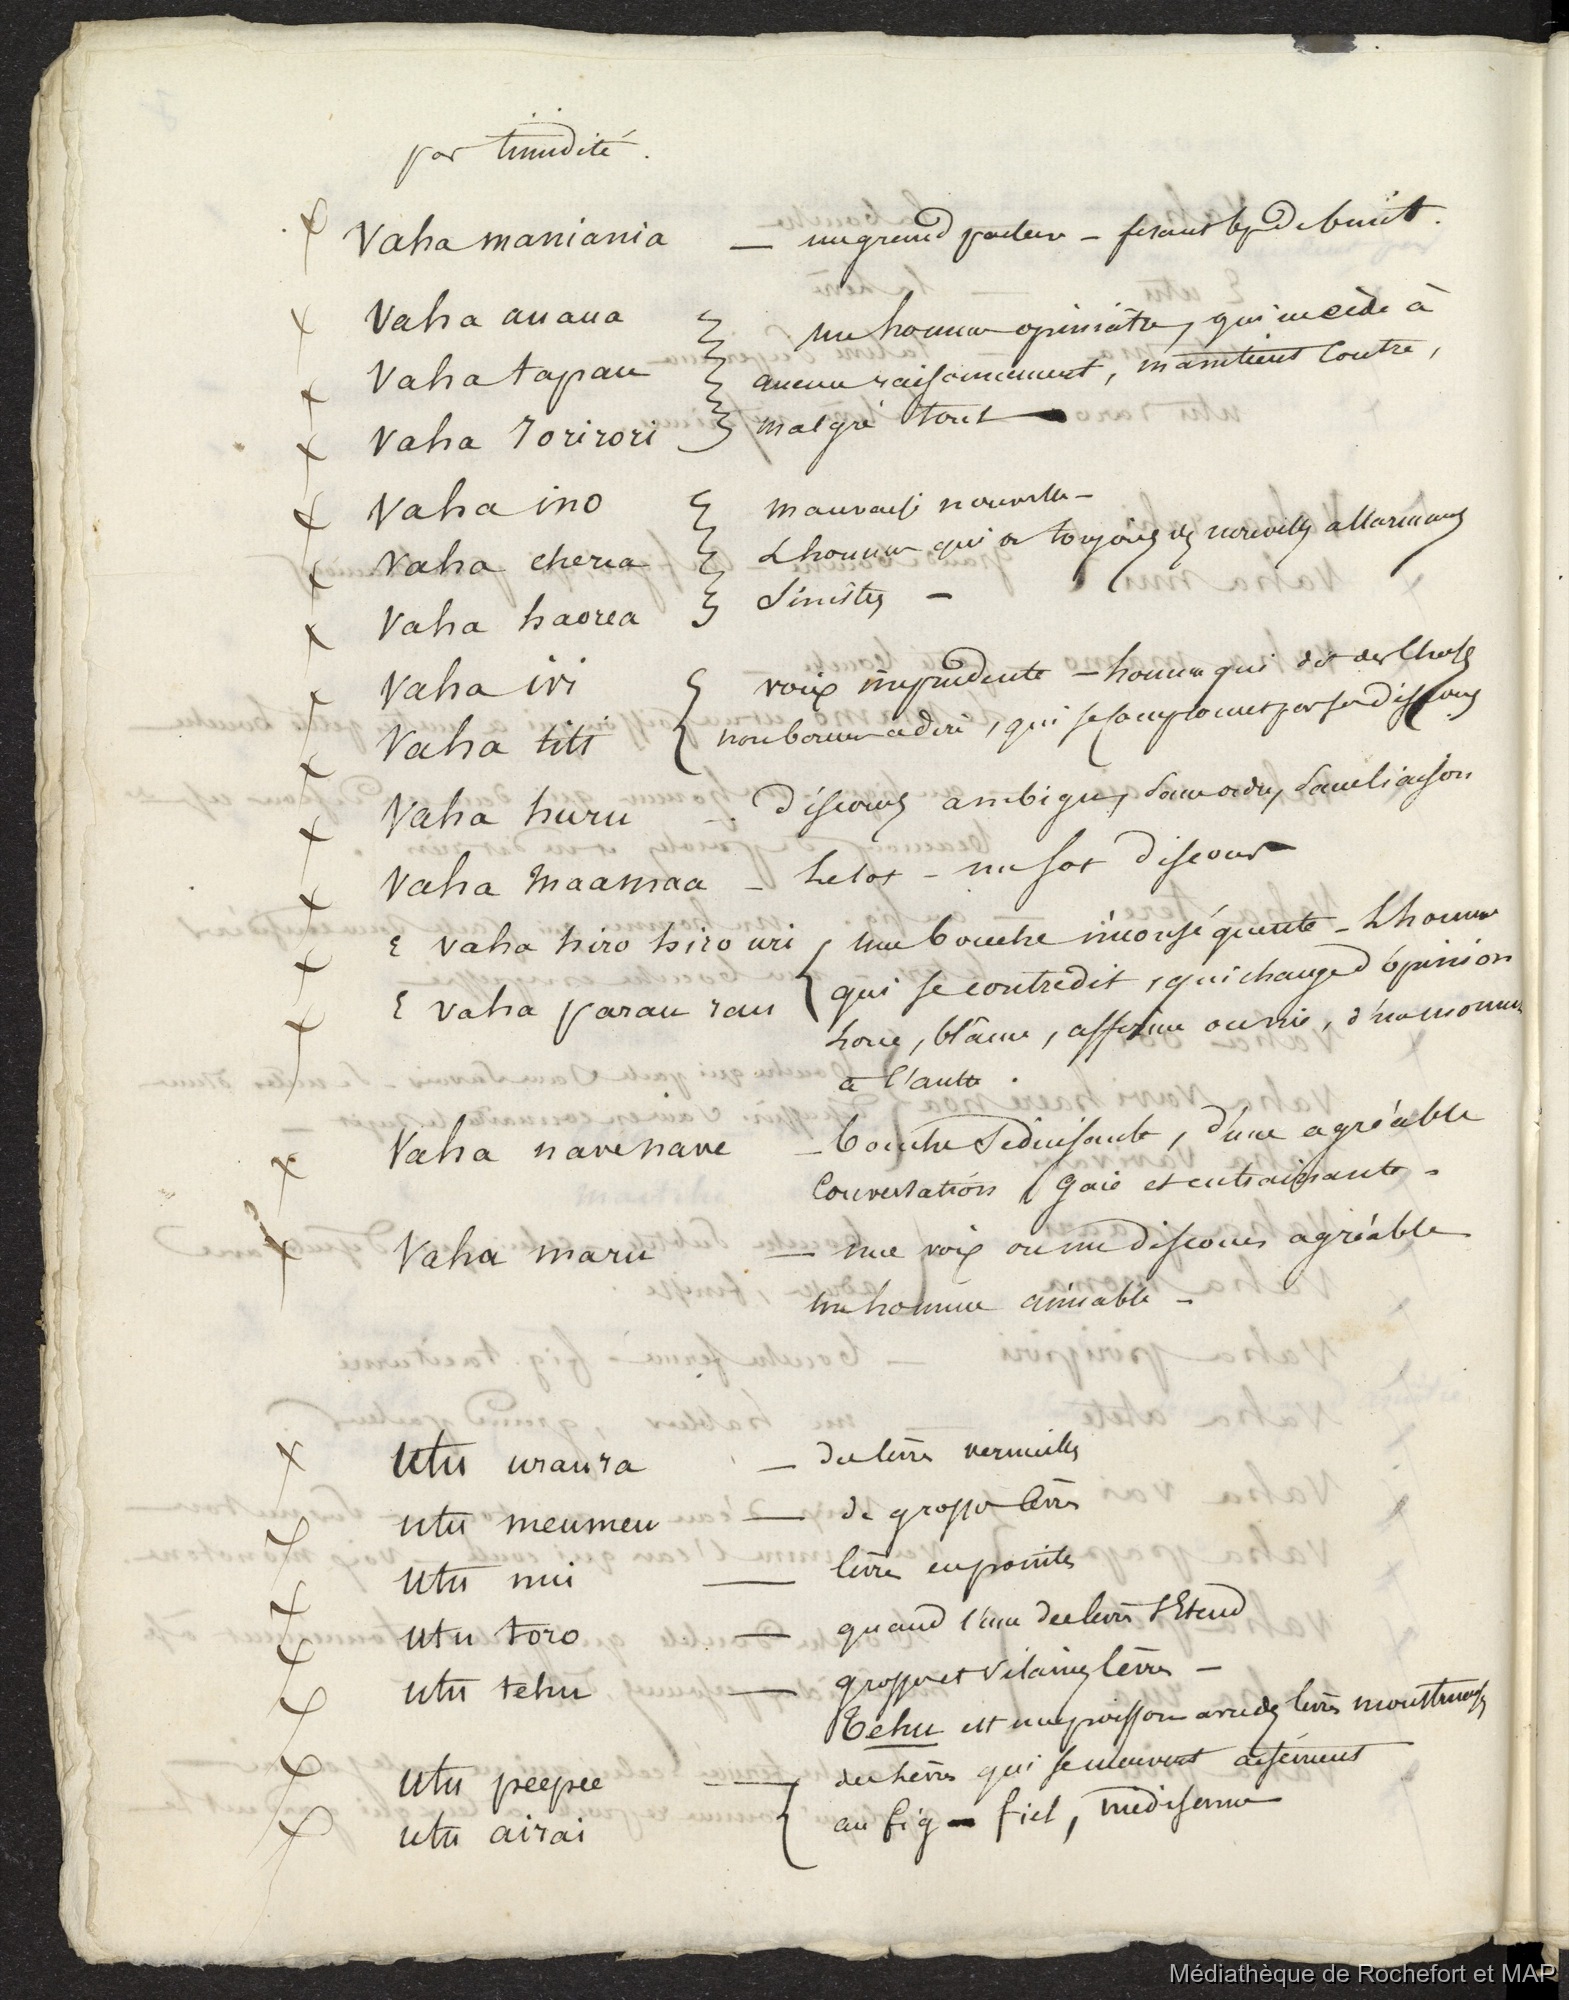 par timidité.
Vaha maniania — un grand parleur — fesant bcp de bruit.
Vaha auaua un homme opiniâtre, qui ne cède à
Vaha tapau aucun raisonnement, maintient contre,
Vaha rorirori malgré tout
Vaha ino mauvaise nouvelle —
Vaha eherea L'homme qui a toujours des nouvelles allarmans
Vaha haorea Sinistres —
Vaha ivi voix imprudente — homme qui dit des choses
Vaha titi non bonnes a dire, qui se compromet par ses discours
Vaha huru — discours ambigu, sans ordre, sans liaison
Vaha maamaa — Le sot — un sot discours
E vaha hiro hiro uri une bouche inconséquente — L'homme
E vaha parau rau qui se contredit, qui change d'opinion
Loue, blâme, affirme ou nie, d'un moment
à l'autre.
Vaha navenave — bouche séduisante, d'une agréable
Conversation, gaie et entrainante —
Vaha maru — une voix ou un discours agréable
un homme aimable —
Utu uraura — des lèvres vermeilles
utu meumeu — de grosses lèvres
utu mii — lèvres en pointes
utu toro — quand l'une des lèvres s'étend
utu tehu — grosses et vilaines lèvres —
Tehu est un poisson avec des lèvres monstrueuses
utu peepee — des lèvres qui se meuvent aisément
utu airai au fig — fiel, médisance
Médiathèque de Rochefort et MAP